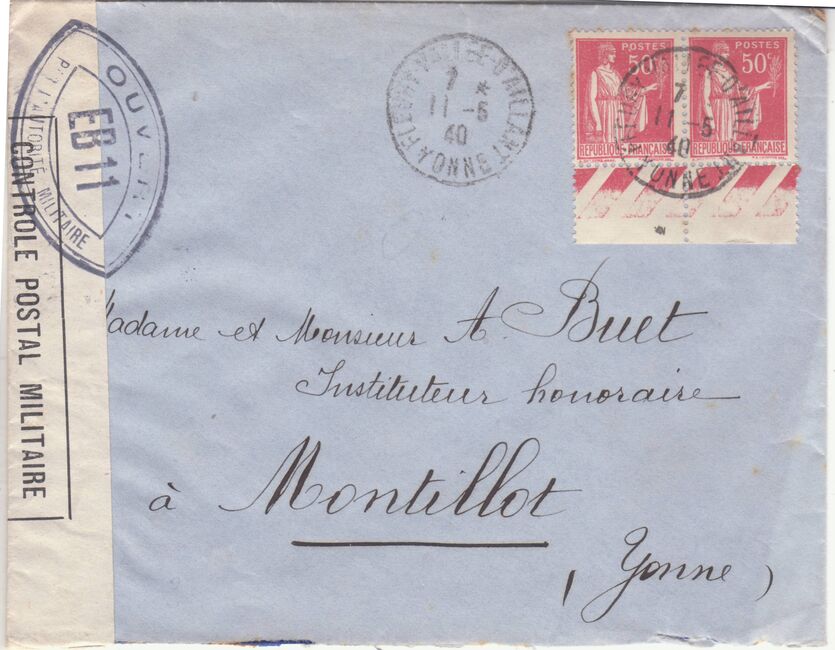 OUVERT
PAR L'AUTORITÉ MILITAIRE
EB11
CONTROLE POSTAL MILITAIRE
FLEURY-VALLEE-D'AILLANT
7 *
11 - 5
40
YONNE
POSTES
50c
RÉPUBLIQUE FRANÇAISE
POSTES
50c
RÉPUBLIQUE FRANÇAISE
FLEURY-VALLEE-D'AILLANT
7
11 - 5
40
YONNE
Madame et Monsieur A. Buet
Instituteur honoraire
à Montillot
(Yonne)